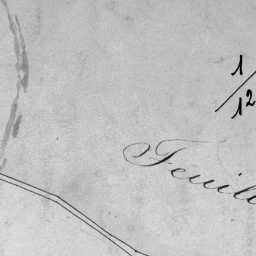 1/12
Feuill